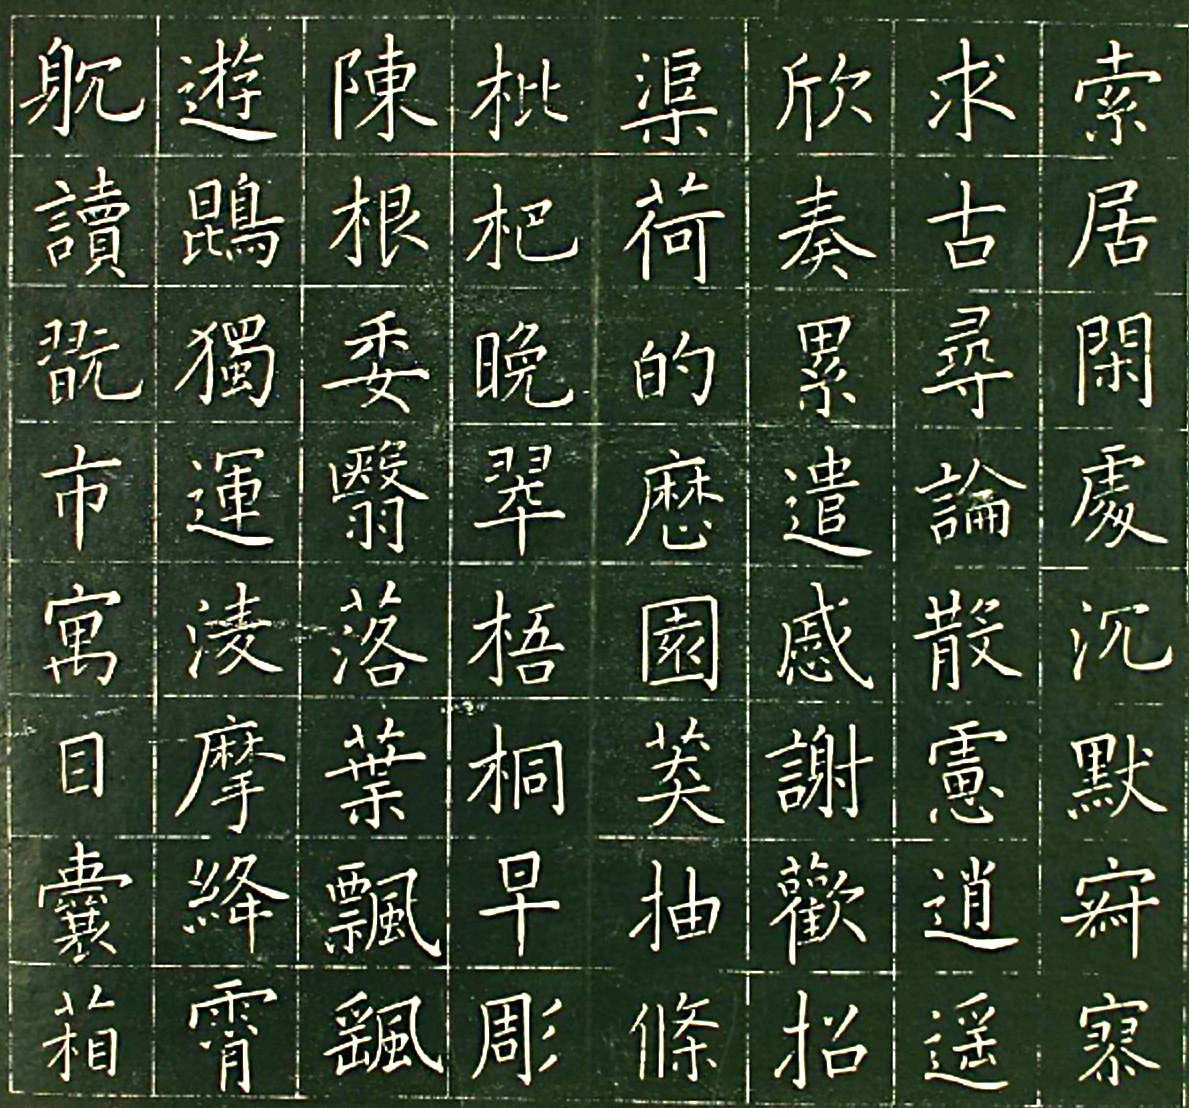 索居閑處沉默寂寥
求古尋論散慮逍遥
欣奏累遣慼謝歡招
渠荷的歷園莽抽條
枇杷晚翠梧桐早彫
陳根委翳落葉飄颻
遊鵾獨運淩摩絳霄
躭讀翫市寓目囊箱